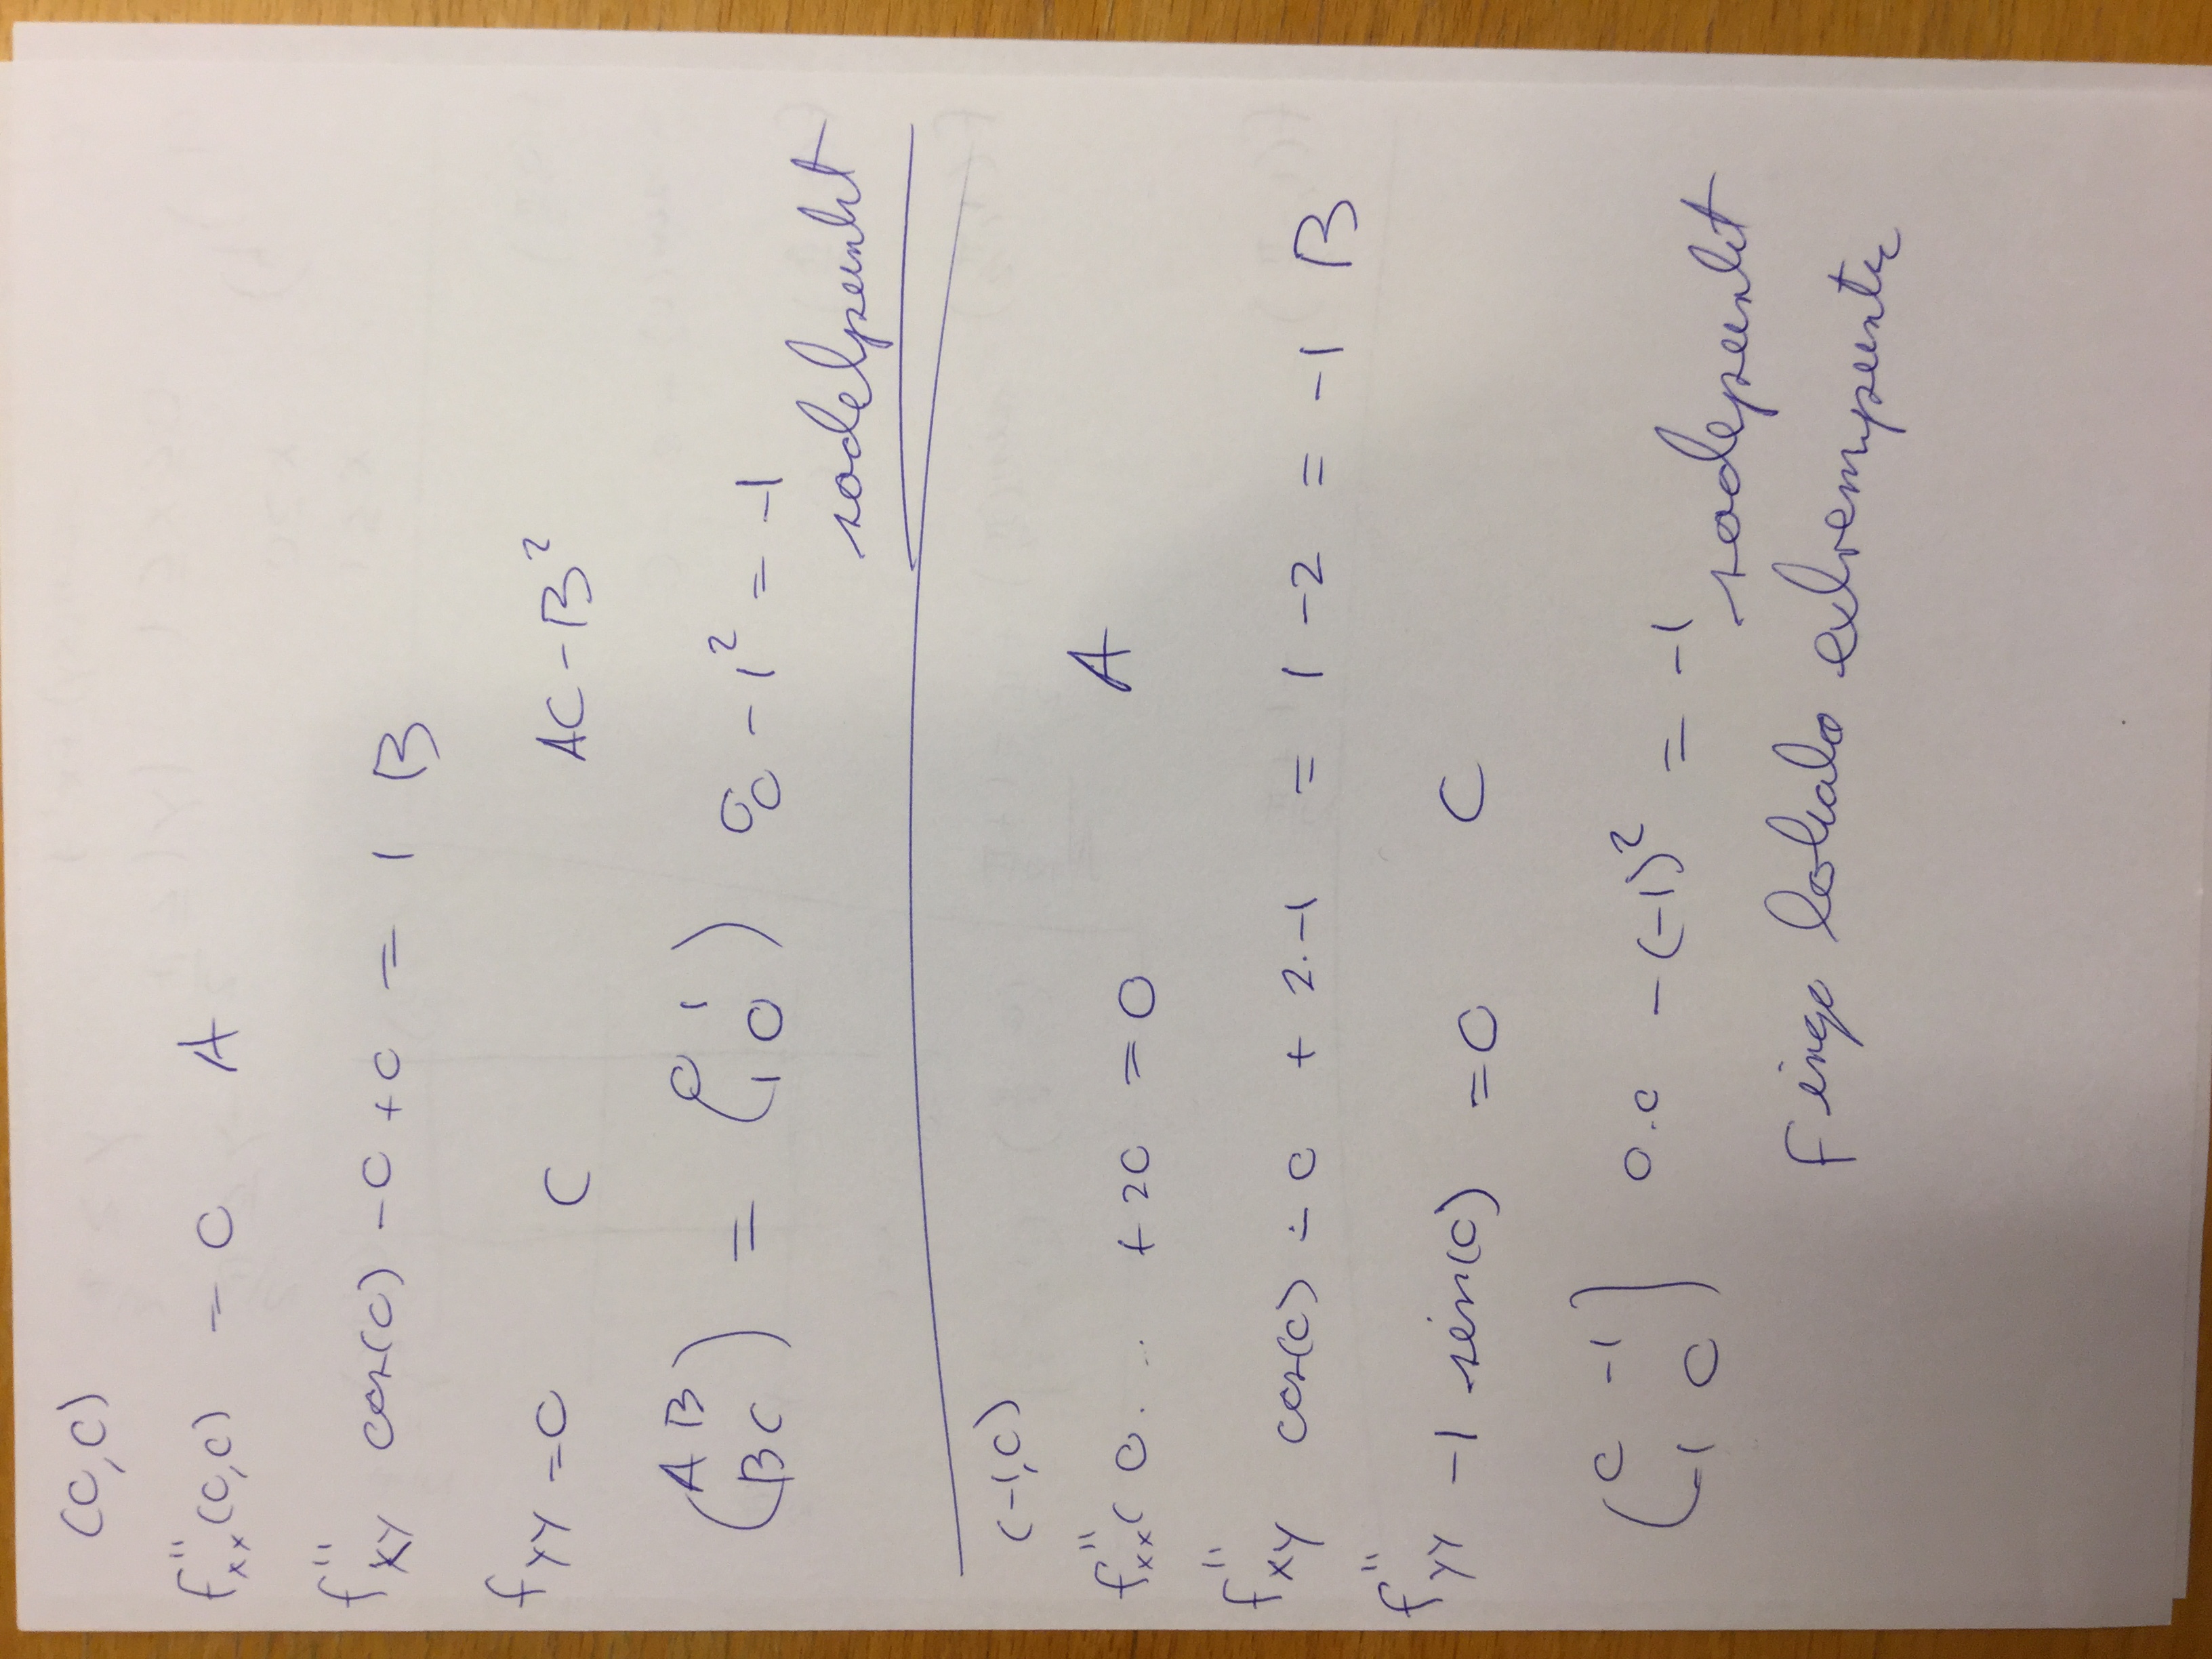 (0,0)
f''xx(0,0) = 0 A
f''xy cos(0) - 0 + 0 = 1 B
fyy = 0 C AC - B²
(A B = (0 1 0·0 - 1² = -1
B C) 1 0)
sadelpunkt
(-1,0)
f''xx( 0... + 20 = 0 A
f''xy cos(0) - 0 + 2·-1 = 1 - 2 = -1 B
f''yy -1 sin(0) = 0 C
(0 -1 0·0 - (-1)² = -1
-1 0)
sadepunkt
f inga lokala extrempunkt